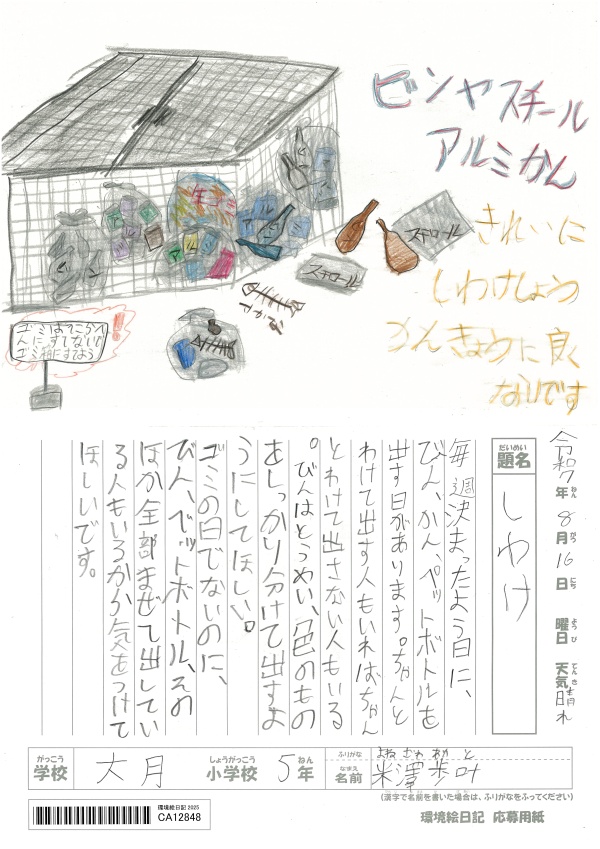 ビンヤスチール
アルミかん
きれいに
しわけしょう
かんきょうに良く
ないです
スチロール
スチロール
ゴミはそこらへ
んにすてない!
ゴミ箱にすてよう
令和7年8月16日
曜日
ようび
天気
てんき
晴れ
だいめい
題名
しわけ
毎週決まったよう日に、
びん、かん、ペットボトルを
出す日があります。ちゃんと
わけて出す人もいればちゃん
とわけて出さない人もいる
。びんはとうめい、色のもの
をしっかり分けて出すよ
うにしてほしい。
ゴミの日でないのに、
びん、ペットボトル、その
ほか全部まぜて出してい
る人もいるから気をつけて
ほしいです。
がっこう
学校
大月
しょうがっこう
小学校
5年
ねん
ふりがな
よねざわ あゆと
なまえ
名前
米澤歩叶
(漢字で名前を書いた場合は、ふりがなをふってください)
環境絵日記2025
CA12848
環境絵日記 応募用紙